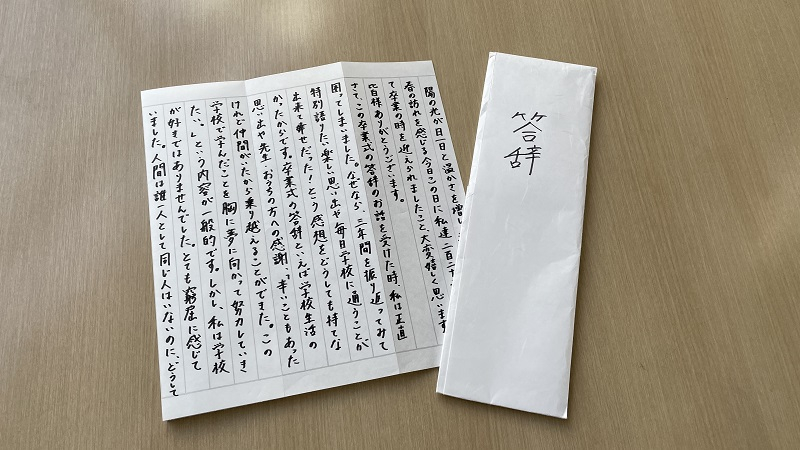 答辞
陽の光が日一日と温かさを増し
春の訪れを感じる今日この日に私達二百二十
て卒業の時を迎えられましたこと、大変嬉しく思います
皆様ありがとうございます。
さて、この卒業式の答辞のお話を受けた時、私は正直
困ってしまいました。なぜなら、三年間を振り返ってみて
特別語りたい楽しい思い出や毎日学校に通うことが
出来て幸せだった!という感想をどうしても持てな
かったからです。卒業式の答辞といえば学校生活の
思い出や先生・おうちの方への感謝、「辛いこともあった
けれど仲間がいたから乗り越えることができた。この
学校で学んだことを胸に夢に向かって努力していき
たい。」という内容が一般的です。しかし、私は学校
が好きではありませんでした。とても窮屈に感じて
いました。人間は誰一人として同じ人はいないのに、どうして